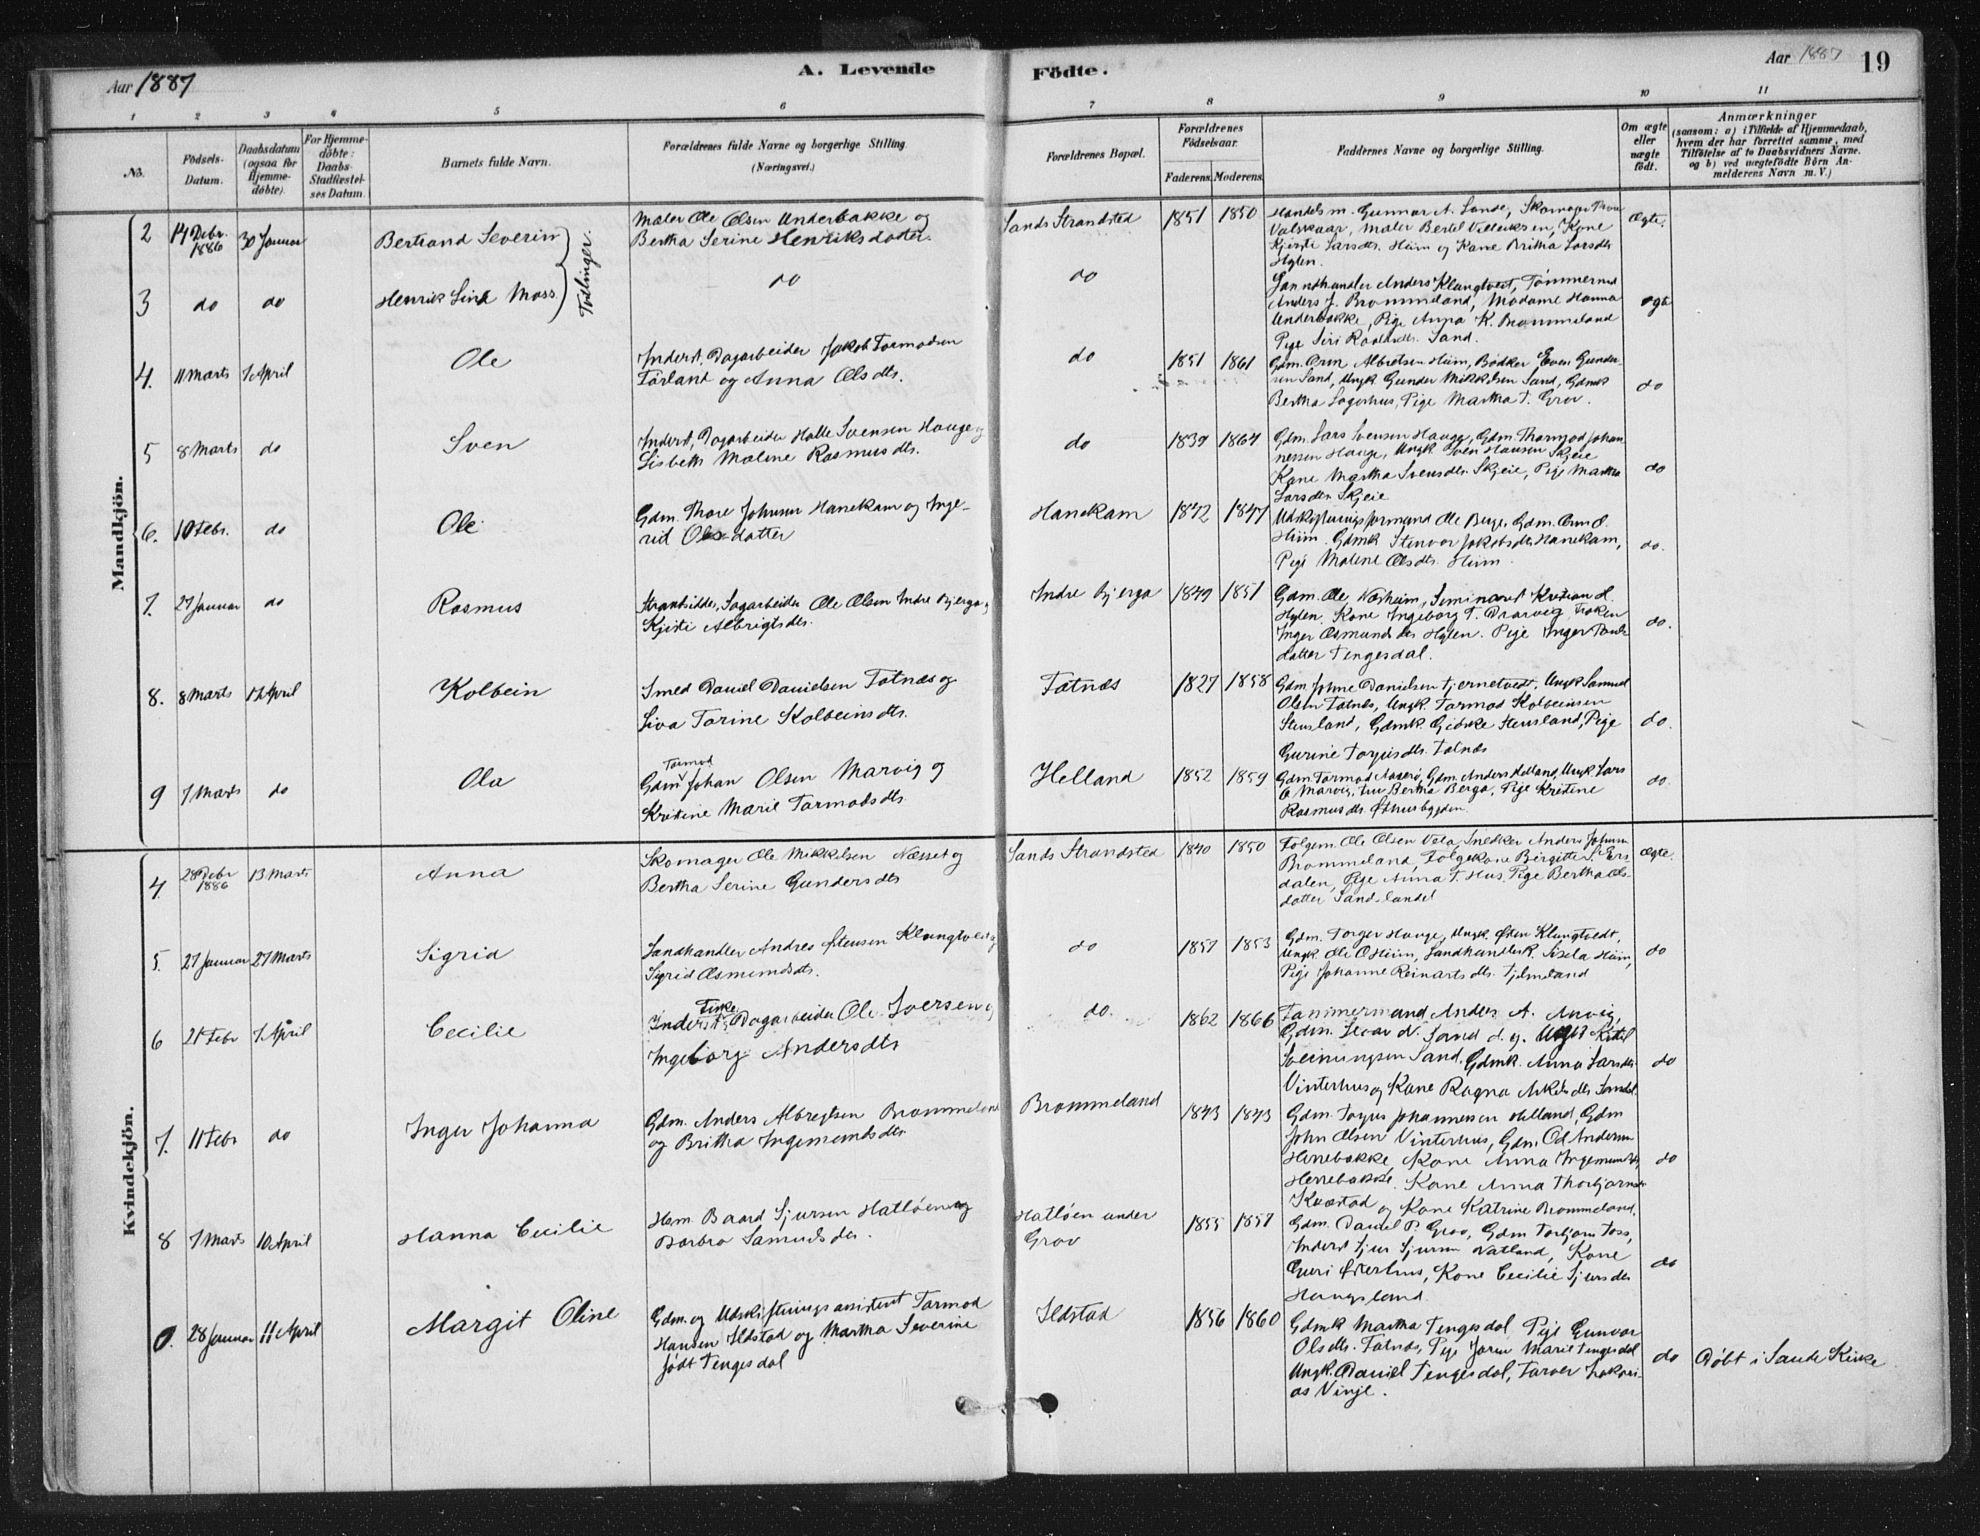 Aar 1887
A. Levende
Födte.
Aar 1887
19
1 2 3 4 5 6 7 8 9 10 11
No.
Födsels-Datum.
Daabsdatum (ogsaa for Hjemme-døbte).
For Hjemme-døbte: Daabs-Stadfæstelses Datum.
Barnets fulde Navn.
Forældrenes fulde Navne og borgerlige Stilling. (Næringsvei.)
Forældrenes Bopæl.
Forældrenes Födselsaar.
Faderens. Moderens.
Faddernes Navne og borgerlige Stilling.
Om ægte eller uægte født.
Anmærkninger
(saasom: a) i Tilfælde af Hjemmedaab, hvem der har forrettet samme, med Tilføielse af to Daabsvidners Navne. og b) ved uægtefödte Börn Anmelderens Navn m. V.)
Mandkjön.
2 14 Debr. 1886 30 Januar Bertrand Severin
Maler Ole Olsen Underbakke og
Bertha Serine Henriksdatter.
Sands Strandsted 1851 1850
Handelsm. Gunnar A. Sande, Skomager
Valskaar, Maler Bertel Villeksen, Kone
Kjersti Larsdtr. Hiim og Kone Britha Larsdtr
Hylen.
Ægte.
Tvillinger.
3 do do Henrik Moss
do
do
Anders Klungtvedt, Tømmermd
Anders J. Brommeland, Madame Hanna
Underbakke, Pige Anna K. Brommeland
Pige Siri Sand.
ægte
4. 11 Marts 1 April Ole
Inderst, Dagarbeider Jakob Tormodsen
Førland og Anna Olsdtr.
do 1851 1861
Gdm. Orm Albretsen Hiim, Bødker Even Gunder-
sen Sand, Ungk Gunder Mikkelsen Sand, Gdmk
Bertha Lagerhus, Pige Martha T. Grov.
do
5 8 Marts do Sven
Inderst, Dagarbeider Halle Svensen Hauge og
Lisbeth Malene Rasmusdtr.
do 1839 1864
Gdm. Lars Svensen Hauge, Gdm. Thormod Johan
nessen Hauge, Ungk Sven Hansen Skjeie
Kone Martha Svensdtr. Skjeie, Pige Martha
Larsdtr Skjeie
do
6. 10 Febr. do Ole
Gdm. Thore Johnsen Hanekam og Inge-
rid Olsdatter
Hanekam 1842 1847
Udskiftningsformand Ole Berge, Gdm. Orm O.
Hiim. Gdmk Stenvor Jakobsdtr Hanekam,
Pige Malene Olsdtr. Hiim.
do.
7. 27 Januar do Rasmus
Strandsidder, Dagarbeider Ole Olsen Indre Bjerga og
Kjisti Albrigtsdtr.
Indre Bjerga 1849 1851
Gdm. Ole Næsheim, Seminarist Kristian H.
Hylen. Kone Ingeborg T. Drarvig, Frøken
Inger Osmundsdtr Hylen. Pige Inger Pauls
datter Tengesdal.
do.
8. 8 Marts 1 April Kolbein
Smed Daniel Danielsen Fatnæs og
Siva Torine Kolbeinsdtr.
Fatnæs 1827 1858
Gdm. Johne Danielsen Tjernetvedt, Ungk Samuel
Olsen Fatnes, Ungk. Tormod Kolbeinsen
Stensland, Gdmk Stensland, Pige
Gurine Torgersdtr. Fatnæs
do.
9 7 Marts do Ola
Gdm. Tormod Johan Olsen Marvig og
Kristine Marie Tormodsdtr.
Helland 1852 1859
Gdm Tormod Aaserø, Gdm. Anders Helland, Ungk. Lars
O Marvig, Fru Bertha Berge, Pige Kristine
Rasmusdtr. Østhusbygden.
do.
Kvindekjön.
4. 28 Debr 1886 13 Marts Anna
Skomager Ole Mikkelsen Næsset og
Bertha Serine Gundersdtr
Sands Strandsted 1840 1850
Følgem. Ole Olsen Vela, Snedker Anders Johnsen
Brommeland, Følgekone Birgitte Ers-
dalen, Pige Anna T. Hus. Pige Bertha Ols-
datter Sandslandet
Ægte.
5. 27 Januar 27 Marts Sigrid
Landhandler Andres Østensen Klungtvedt og
Sigrid Osmundsdtr.
do 1857 1853
Gdm. Torger Hauge, Ungk. Østen Klungtvedt,
Ungk Ole O Hiim, Landhandlersk. Sisela Hiim,
Pige Johanne Reinartsdtr. Tjelmeland
do
6 21 Febr 1 April Cecilie
Inderst, Dagarbeider Ole Iversen og
Ingeborg Andersdtr
do. 1862 1866
Tømmermand Anders A. Marvig,
Gdm. Ivar N. Sand d. y. Ungk. Ketil
Sveinungsen Sand, Gdmk. Anna Larsdtr
Vinterhus og Kone Ragna
do
7. 11 Febr do Inger Johanna
Gdm. Anders Albregtsen Brommeland
og Britha Ingemundsdtr
Brommeland 1843 1843
Gdm. Torgius Johannessen Helland, Gdm
John Olsen Vinterhus, Gdm. Od Andersen
Herrebakke, Kone Anna Ingemunds
Herrebakke. Kone Anna Thorbjørns
Kvæstad og Kone Katrine Brommeland.
do
8 7 Marts 10 April Hanna Cecilie
Hsm. Baard Sjursen Hatløen og
Barbro Samundsdtr.
Hatløen under
Grov
1855 1857
Gdm. Daniel P. Grov, Gdm Torbjørn Foss,
Inderst Sjur Sjursen Natland, Kone
Guri Østerhus, Kone Cecilie Sjursdtr
Haugsland.
do
9. 28 Januar 11 April Margit Oline
Gdm. og Udskiftningsassistent Tormod
Hansen Ilstad og Martha Severine
født Tengesdal
Ilstad 1856 1860
Gdmk Martha Tengesdal, Pige Gunvor
Olsdtr. Fatnæs, Pige Marie Tengesdal
Ungk. Daniel Tengesdal, Farver Zakari-
as Vinje.
do
Døbt i Sande Kirke